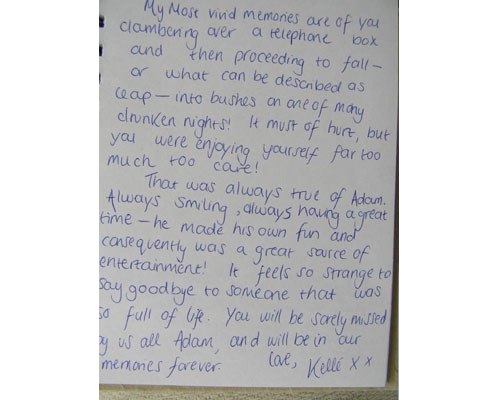 My Most vivid memories are of you
clambering over a telephone box
and then proceeding to fall –
or what can be described as
leap – into bushes on one of many
drunken nights! It must of hurt, but
you were enjoying yourself far too
much too care!
That was always true of Adam.
Always smiling, always having a great
time – he made his own fun and
consequently was a great source of
entertainment! It feels so strange to
say goodbye to someone that was
so full of life. You will be sorely missed
by us all Adam, and will be in our
memories forever. Love, Kelli x x